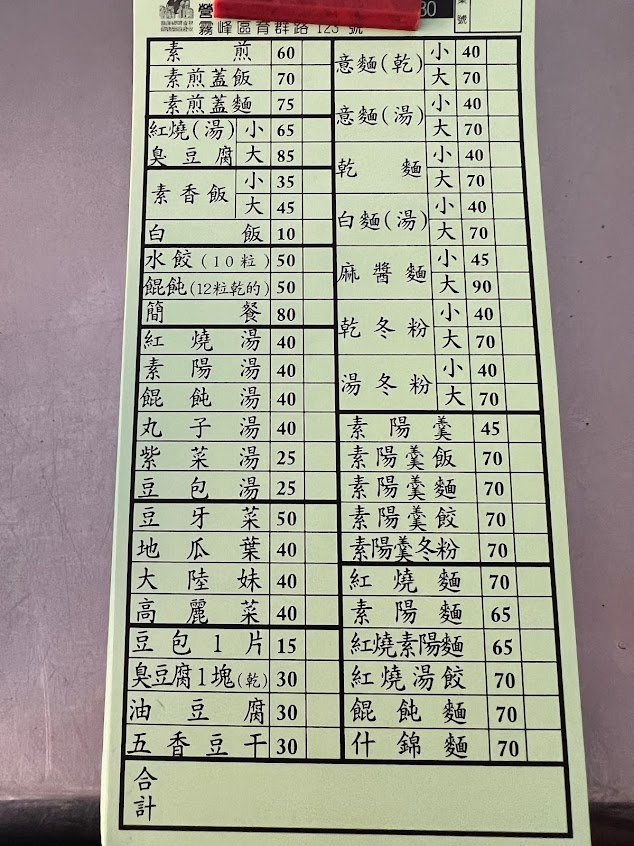 營
80
號
霧峰區育群路123號
素煎 60
素煎蓋飯 70
素煎蓋麵 75
紅燒(湯)臭豆腐 小 65
大 85
素香飯 小 35
大 45
白飯 10
水餃(10粒) 50
餛飩(12粒乾的) 50
簡餐 80
紅燒湯 40
素陽湯 40
餛飩湯 40
丸子湯 40
紫菜湯 25
豆包湯 25
豆牙菜 50
地瓜葉 40
大陸妹 40
高麗菜 40
豆包1片 15
臭豆腐1塊(乾) 30
油豆腐 30
五香豆干 30
意麵(乾) 小 40
大 70
意麵(湯) 小 40
大 70
乾麵 小 40
大 70
白麵(湯) 小 40
大 70
麻醬麵 小 45
大 90
乾冬粉 小 40
大 70
湯冬粉 小 40
大 70
素陽羹 45
素陽羹飯 70
素陽羹麵 70
素陽羹餃 70
素陽羹冬粉 70
紅燒麵 70
素陽麵 65
紅燒素陽麵 65
紅燒湯餃 70
餛飩麵 70
什錦麵 70
合計